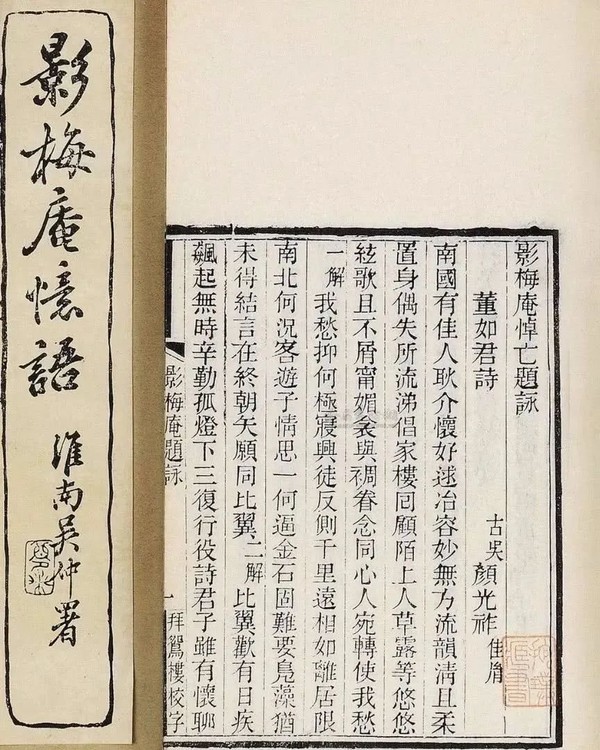 影梅庵憶語
淮南吳仲署
影梅庵悼亡題詠
董如君詩
古吳 顏光祚 佳胤
南國有佳人耿介懷好逑冶容妙無方流韻淸且柔
置身偶失所流涕倡家樓囘顧陌上人草露等悠悠
絃歌且不屑甯媚衾與裯眷念同心人宛轉使我愁
一解 我愁抑何極寢興徒反側千里遠相如離居限
南北何況客遊子情思一何逼金石固難要鳧藻猶
未得結言在終朝矢願同比翼二解 比翼歡有日疾
飆起無時辛勤孤燈下三復行役詩君子雖有懷聊
影梅庵題詠 一 拜鴛樓校字